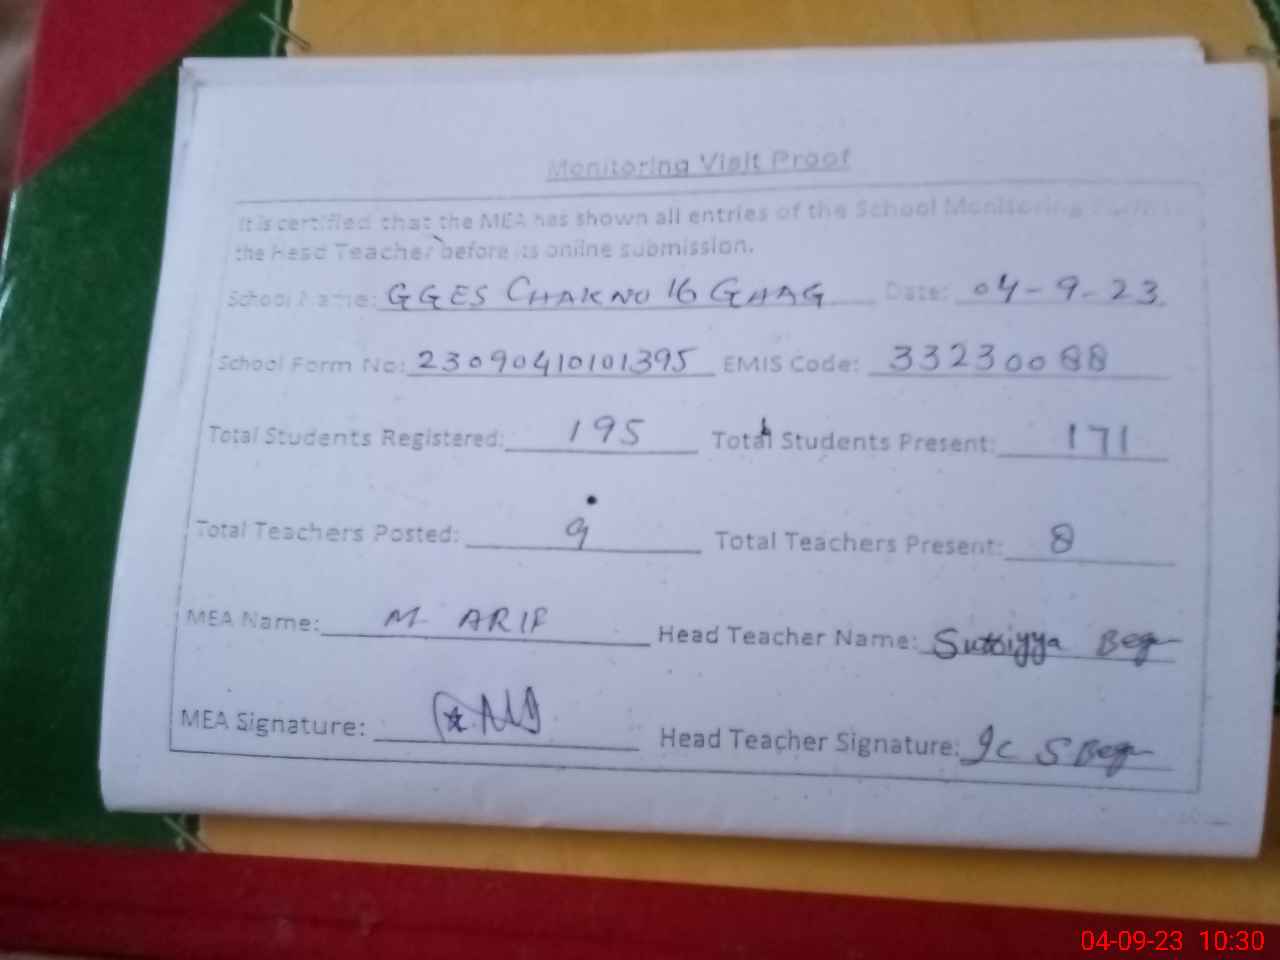 Monitoring Visit Proof
It is certified that the MEA has shown all entries of the School Monitoring
the Head Teacher before its online submission.
School Name: GGES CHAK NO 16 GHAG Date: 04-9-23.
School Form No: 23090410101395 EMIS Code: 33230088
Total Students Registered: 195 Total Students Present: 171
Total Teachers Posted: 9 Total Teachers Present: 8
MEA Name: M. ARIF Head Teacher Name: Beg
MEA Signature: Head Teacher Signature: Ic S Beg
04-09-23 10:30